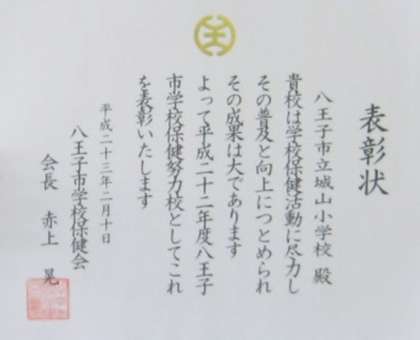 表彰状
八王子市立城山小学校 殿
貴校は学校保健活動に尽力し
その普及と向上につとめられ
その成果は大であります
よって平成二十二年度八王子
市学校保健努力校としてこれ
を表彰いたします
平成二十三年二月十日
八王子市学校保健会
会長 赤上 晃